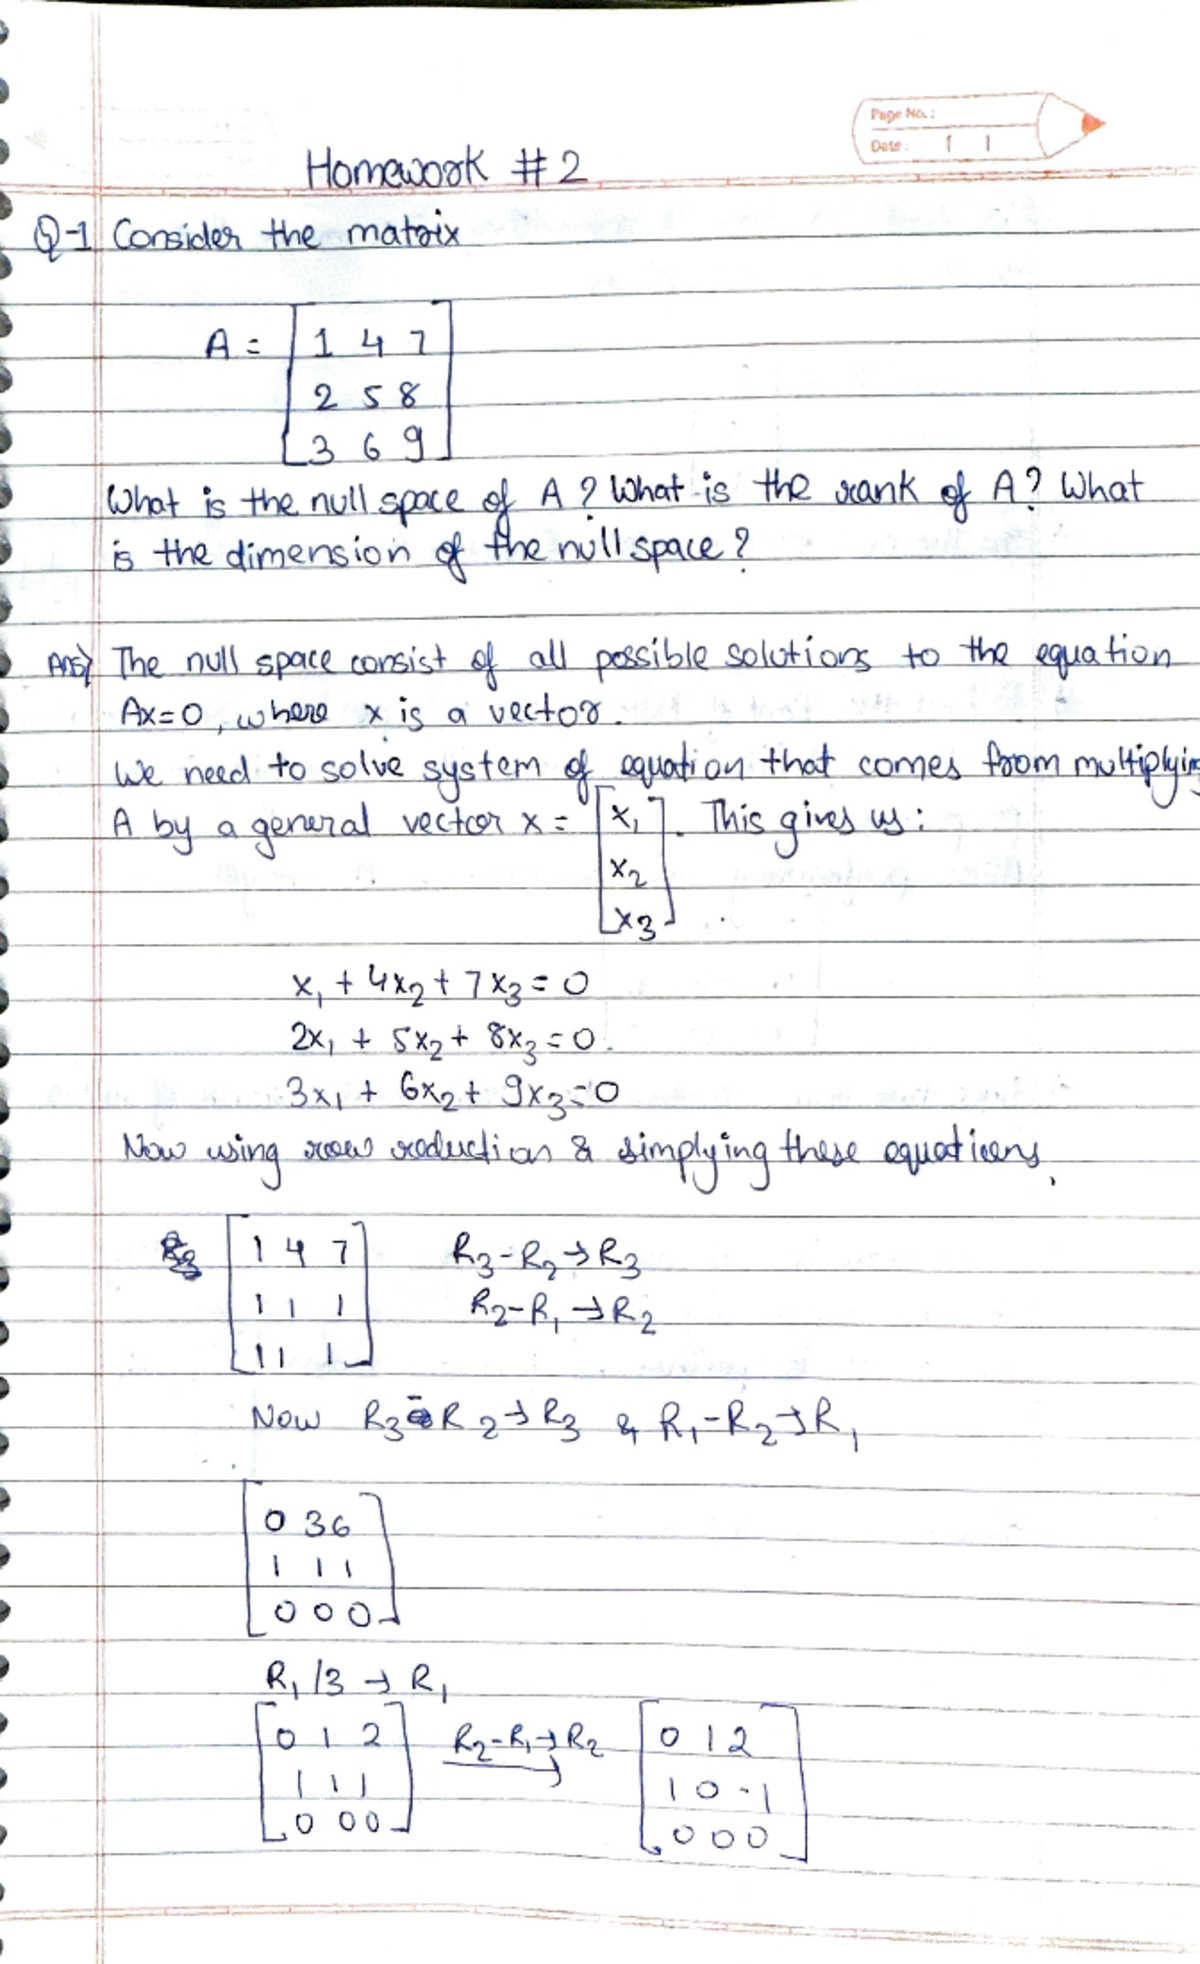 Page No.:
Date:
Homework #2
Q-1 Consider the matrix
A = [1 4 7
2 5 8
3 6 9]
What is the null space of A? What is the rank of A? What
is the dimension of the null space?
Ans) The null space consist of all possible solutions to the equation
Ax=0, where x is a vector.
We need to solve system of equation that comes from multiplying
A by a general vector x = [x₁]. This gives us:
x₂
x₃]
x₁ + 4x₂ + 7x₃ = 0
2x₁ + 5x₂ + 8x₃ = 0.
3x₁ + 6x₂ + 9x₃ = 0
Now using row reduction & simplying these equations,
[1 4 7] R₃-R₂→R₃
1 1 1 R₂-R₁→R₂
1 1 1]
Now R₃-R₂→R₃ & R₁-R₂→R₁
[0 3 6
1 1 1
0 0 0]
R₁/3 → R₁
[0 1 2] R₂-R₁→R₂ [0 1 2
1 1 1 1 0 -1
0 0 0] 0 0 0]